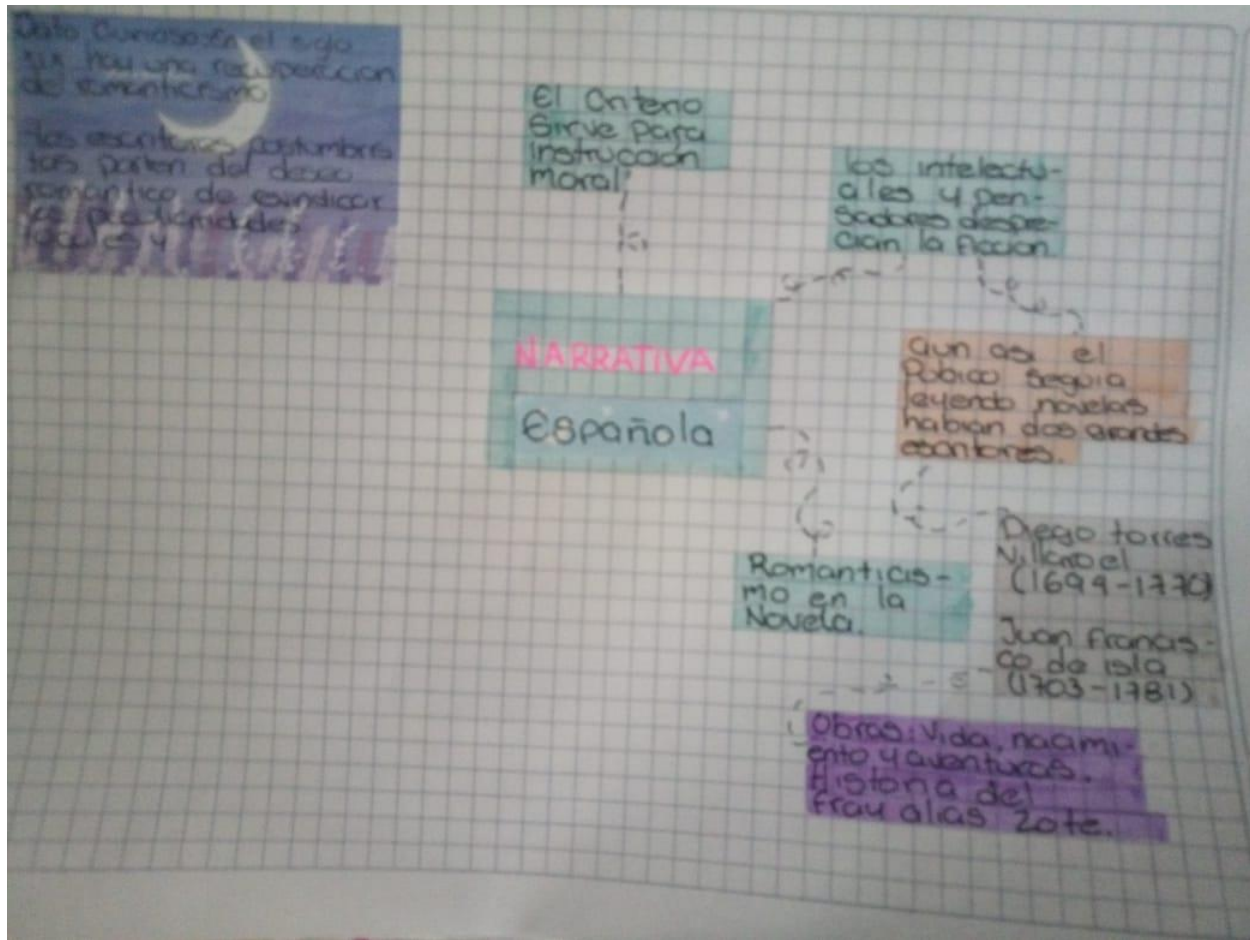 Dato Curioso: En el siglo
XIX hay una recuperacion
de romanticismo
los escrituras costumbris
tas parten del deseo
romantico de
las
locales y
El Criterio
Sirve para
Instrucción
Moral
los intelectu-
ales y pen-
sadores despre-
cian la ficcion
NARRATIVA
Española
aun asi el
Publico seguia
leyendo novelas
habian dos grandes
escritores.
Romanticis-
mo en la
Novela.
Diego torres
Villaroel
(1694-1770)
Juan Francis-
co de isla
(1703-1781)
Obras: Vida, nacimi-
ento y aventuras.
Historia del
fray alias Zote.